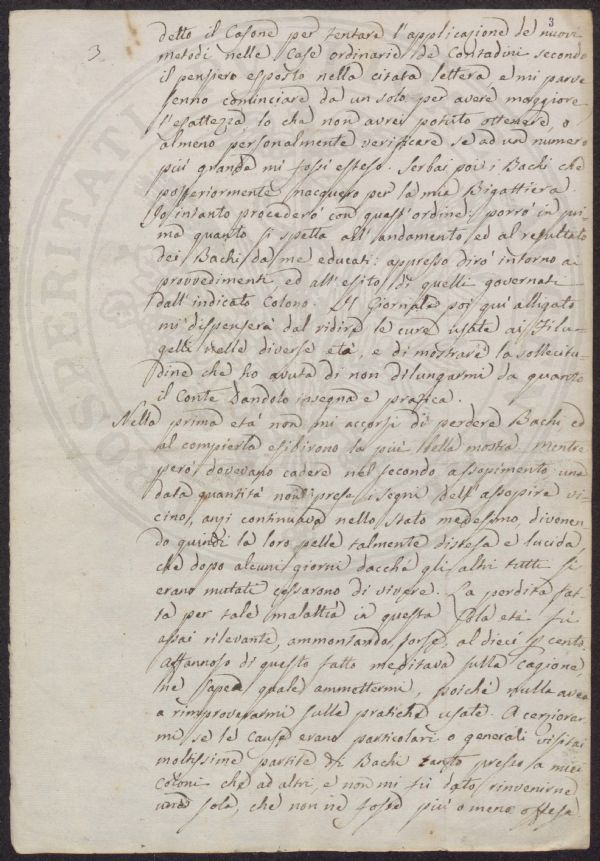 3
3
detto il Casone per tentare l'applicazione de' nuovi
metodi nelle Case ordinarie de' Contadini secondo
il pensiero esposto nella citata lettera e mi parve
senno cominciare da un solo per avere maggiore
l'esattezza, lo che non avrei potuto ottenere, o
almeno personalmente verificare se ad un numero
più grande mi fossi esteso. Serbai poi i Bachi che
posteriormente nacquero per la mia Bigattiera.
Io intanto procederò con quest'ordine: porrò in pri
ma quanto si spetta all'andamento ed al resultato
dei Bachi da me educati: appresso dirò intorno ai
provvedimenti, ed all'esito di quelli governati
dall'indicato Colono. Il Giornale poi qui alligato
mi dispenserà dal ridire le cure usate ai Filu-
gelli nelle diverse età, e di mostrare la sollecitu-
dine che ho avuta di non dilungarmi da quanto
il Conte Dandolo insegna e pratica.
Nella prima età non mi accorsi di perdere Bachi ed
al compierla esibirono la più bella mostra. Mentre
però dovevano cadere nel secondo assopimento una
data quantità non prese i segni dell'assopire vi
cino, anzi continuava nello stato medesimo, divenen
do quindi la loro pelle talmente distesa e lucida,
che dopo alcuni giorni dacchè gli altri tutti si
erano mutati cessarono di vivere. La perdita fat
ta per tale malattia in questa sola età fu
assai rilevante, ammontando forse al dieci p cento.
Affannoso di questo fatto meditava sulla cagione,
ne sapea quale ammettermi, poichè nulla avea
a rimproverarmi sulle pratiche usate. A cerziorar
mi se le cause erano particolari o generali visitai
moltissime partite di Bachi tanto presso a miei
coloni che ad altri, e non mi fu dato rinvenirne
una sola, che non ne fosse più o meno offesa.